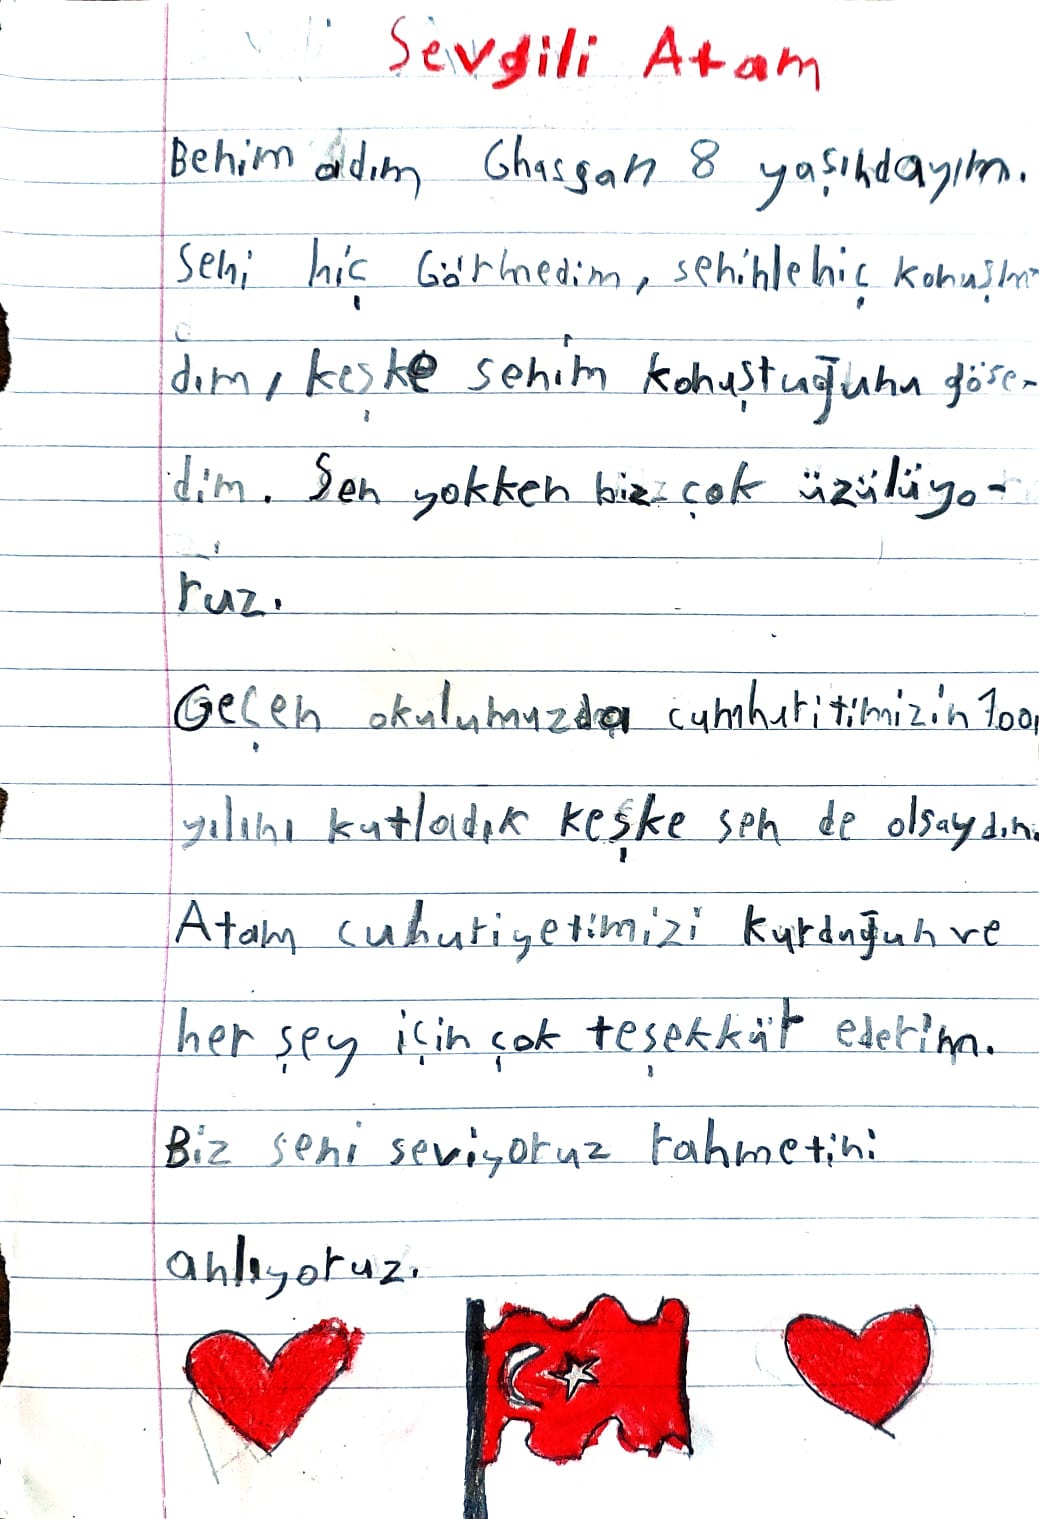 Sevgili Atam
Benim adım Ghassan 8 yaşındayım.
Seni hiç Görmedim, seninle hiç konuşm-
dım, keşke senim konuştuğunu göre-
dim. Sen yokken biz çok üzülüyo-
ruz.
Geçen okulumuzda cumhuritimizin 100,
yılını kutladık keşke sen de olsaydın.
Atam cuhuriyetimizi kurduğun ve
her şey için çok teşekkür ederim.
Biz seni seviyoruz rahmetini
anlıyoruz.